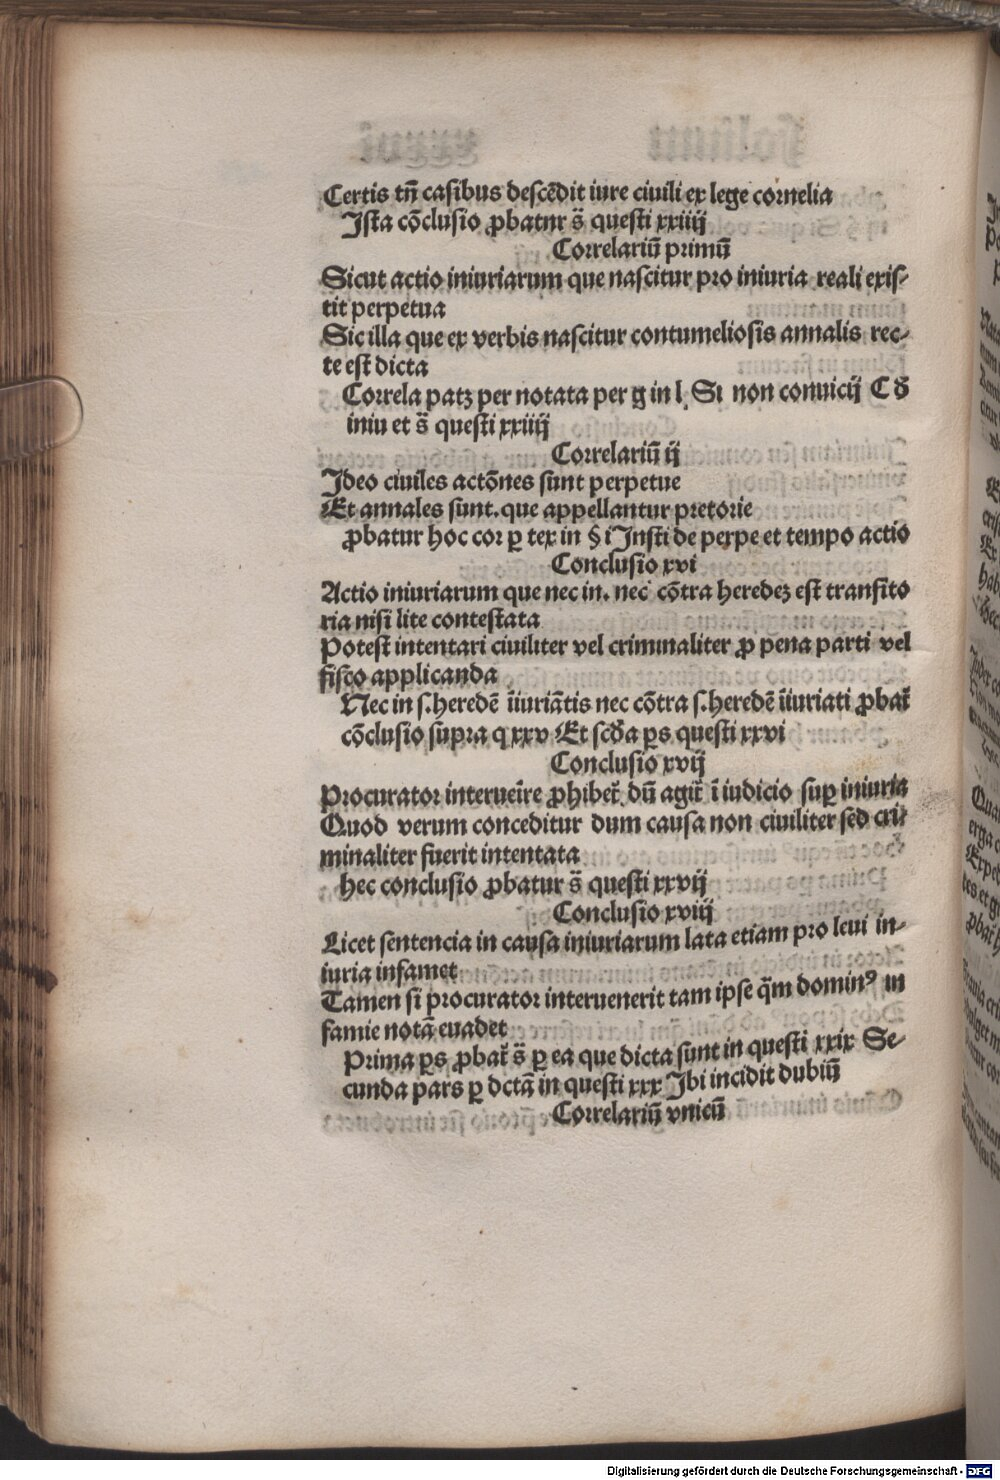 Certis tñ casibus descēdit iure ciuili ex lege cornelia
Ista cōclusio ꝓbatur s̄ questi xxiiij
Correlariū primū
Sicut actio iniuriarum que nascitur pro iniuria reali exis-
tit perpetua
Sic illa que ex verbis nascitur contumeliosis annalis rec-
te est dicta
Correla patꝫ per notata per g in l. Si non conuicij C ď
iniu et s̄ questi xxiiij
Correlariū ij
Ideo ciuiles actōnes sunt perpetue
Et annales sunt. que appellantur pretorie
ꝓbatur hoc cor ꝑ tex in § i Insti de perpe et tempo actio
Conclusio xvi
Actio iniuriarum que nec in. nec cōtra heredeꝫ est transito
ria nisi lite contestata
Potest intentari ciuiliter vel criminaliter ꝓ pena parti vel
fisco applicanda
Nec in s. heredē īiuriātis nec cōtra s. heredē īiuriati ꝓbat᷑
cōclusio supra q xxv Et scďa ꝑs questi xxvi
Conclusio xvij
Procurator interueīre ꝓhibet᷑ dū agit᷑ ī iudicio suꝑ iniuria
Quod verum conceditur dum causa non ciuiliter sed cri-
minaliter fuerit intentata
hec conclusio ꝓbatur s̄ questi xxvij
Conclusio xviij
Licet sentencia in causa iniuriarum lata etiam pro leui in-
iuria infamet
Tamen si procurator interuenerit tam ipse q̄m dominꝰ in
famie notā euadet
Prima ꝑs ꝓbat᷑ s̄ ꝑ ea que dicta sunt in questi xxix Se-
cunda pars ꝑ dctā in questi xxx Ibi incidit dubiū
Correlariū vnicū
Digitalisierung gefördert durch die Deutsche Forschungsgemeinschaft - DFG